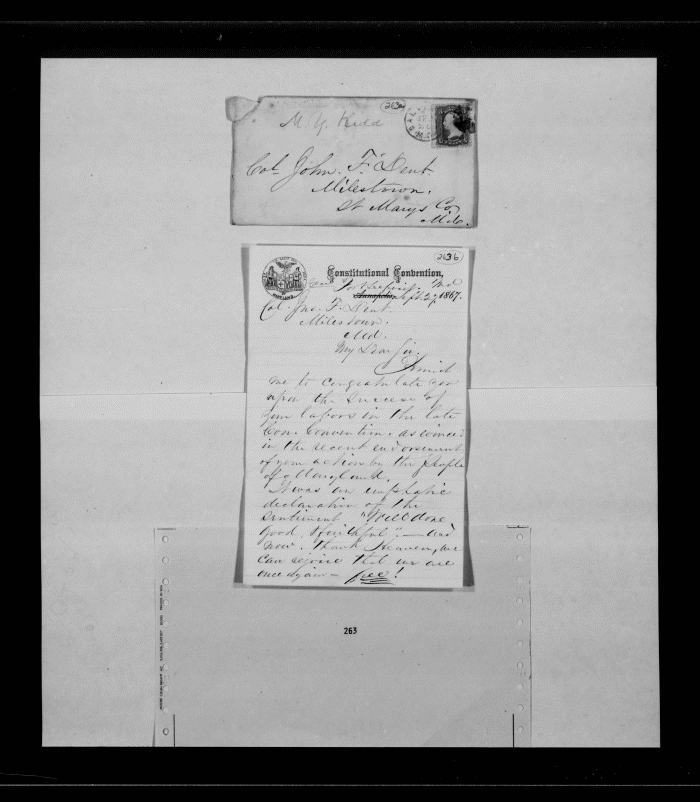 263a
M. Y. Kidd
Col. John. F. Dent.
Milestown.
St Marys Co
Md.
263b
Constitutional Convention,
Md
Annapolis, Sept. 27, 1867.
Col. Jno. F. Dent.
Milestown.
Md.
My Dear Sir.
Permit
me to congratulate you
upon the success of
your labors in the late
Con. Convention. as evinced
in the recent endorsement
of your action by the people
of Maryland.
It was an emphatic
declaration of the
sentiment "Well done
good & faithful" — and
now. thank Heaven, we
can rejoice that we are
once again – free!
263